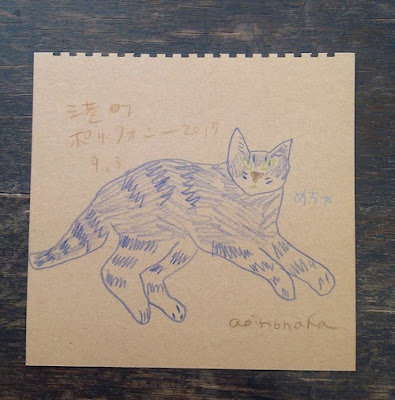 港の
ポリフォニー2019
9.3
めちゃ
aoinonaka